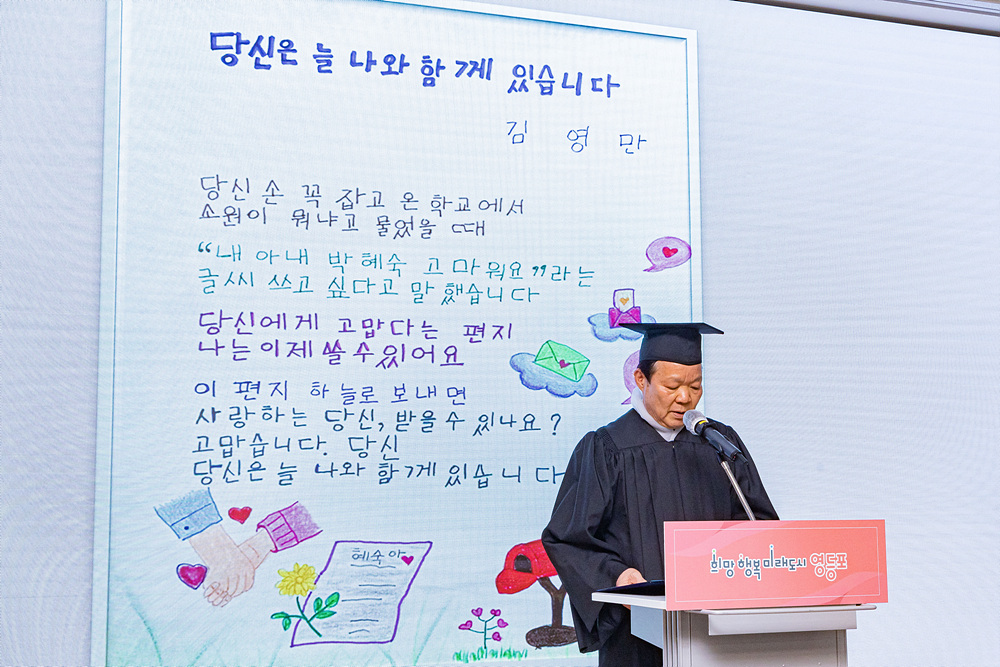 당신은 늘 나와 함께 있습니다
김 영 만
당신 손 꼭 잡고 온 학교에서
소원이 뭐냐고 물었을 때
“내 아내 박혜숙 고마워요”라는
글씨 쓰고 싶다고 말했습니다
당신에게 고맙다는 편지
나는 이제 쓸 수 있어요
이 편지 하늘로 보내면
사랑하는 당신, 받을 수 있나요?
고맙습니다. 당신
당신은 늘 나와 함께 있습니다
혜숙아
희망·행복·미래도시 영등포